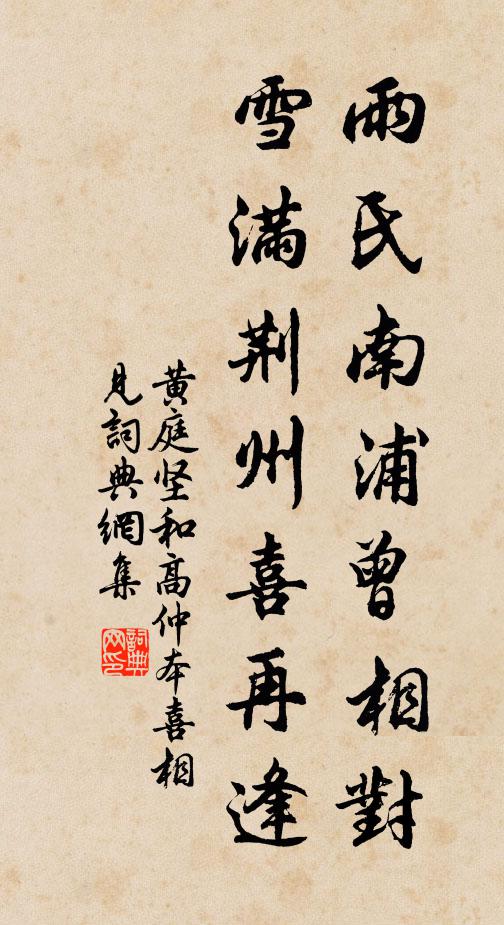 雨氏南浦曾相對
雪滿荆州喜再逢
黄庭坚和高仲本喜相
見詞典網集
詞典
网印